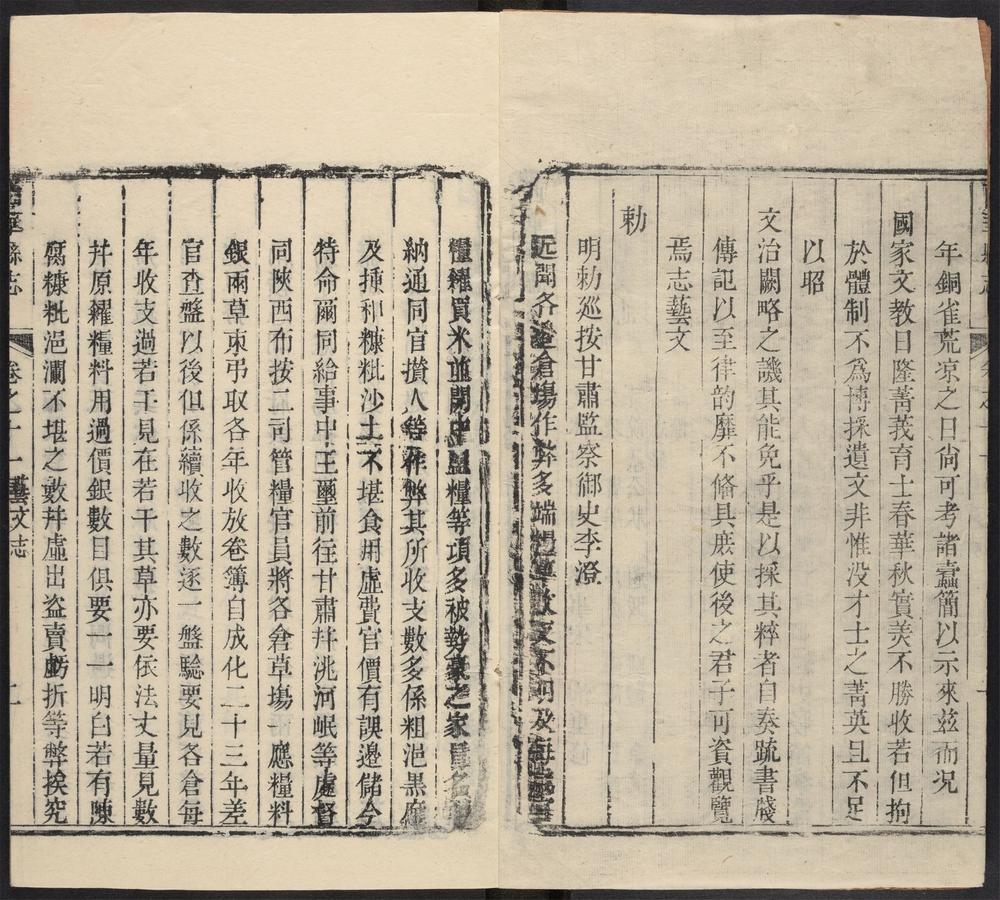 年銅雀荒凉之日尙可考諸蠹簡以示來玆而况
國家文教日隆菁莪育士春華秋實美不勝收若但拘
於體制不爲博採遺文非惟没才士之菁英且不足
以昭
文治闕略之譏其能免乎是以採其粹者自奏䟽書牋
傳記以至律韵靡不俻具庶使後之君子可資觀覽
焉志藝文
勅
明勅廵按甘肅監察御史李澄
近聞各𠙚倉塲作弊多端 不明及
糴買米並開中鹽糧等項多被勢豪之家
納通同官攅人等作弊其所收支數多係粗浥黑
及揷和糠粃沙土不堪食用虛費官價有誤邉儲今
特命爾同給事中王璽前往甘肅幷洮河岷等處督
同陜西布按二司管糧官員將各倉草塲 應糧料
銀兩草束弔取各年收放卷簿自成化二十三年差
官查盤以後但係續收之數逐一盤驗要見各倉每
年收支過若干見在若干其草亦要依法丈量見數
幷原糴糧料用過價銀數目俱要一一明白若有陳
腐糠粃浥瀾不堪之數幷虛出盗賣虧折等弊挨究
縣志
卷之十一 藝文志
二